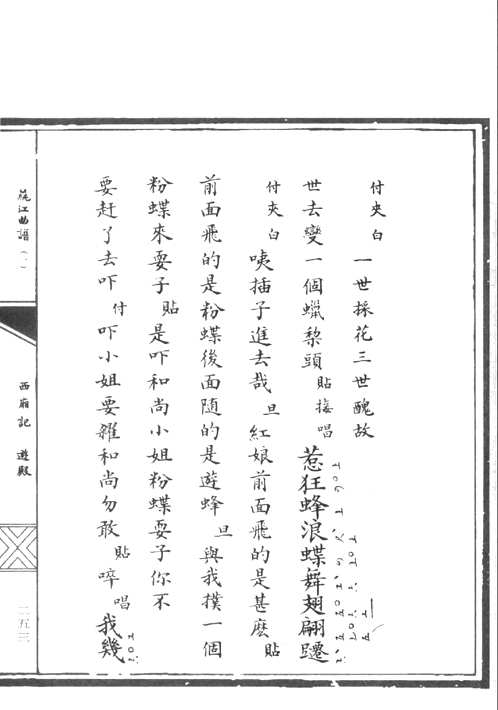 付夾白一世採花三世醜故
世去變一個蠟梨頭貼接唱惹狂蜂浪蝶舞翅翩躚
付夾白咦插子進去哉旦紅娘前面飛的是甚麽貼
前面飛的是粉蝶後面隨的是遊蜂旦與我撲一個
粉蝶來耍子貼是吓和尚小姐粉蝶耍子你不
要赶了去吓付吓小姐要雜和尚勿敢貼啐唱我幾
曲譜(一)
西廂記 遊殿
二五三